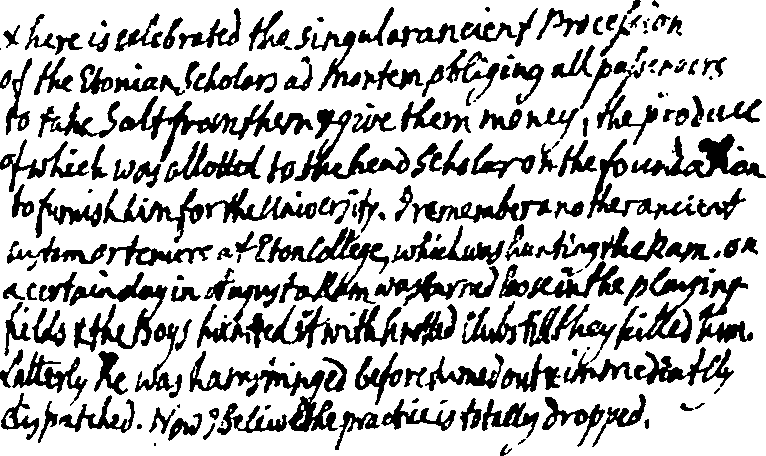 & here is celebrated the singular ancient Procession
of the Etonian Scholars ad Montem obliging all passengers
to take Salt from them & give them money, the produce
of which was allotted to the head Scholar on the foundation
to furnish him for the University. I remember another ancient
custom or tenure at Eton College, which was hunting the Ram. on
a certain day in August a Ram was turned loose in the playing
fields & the Boys hunted it with knotted Clubs till they killed him.
Latterly he was hamstringed before turned out & immediately
dispatched. Now I believe the practice is totally dropped.